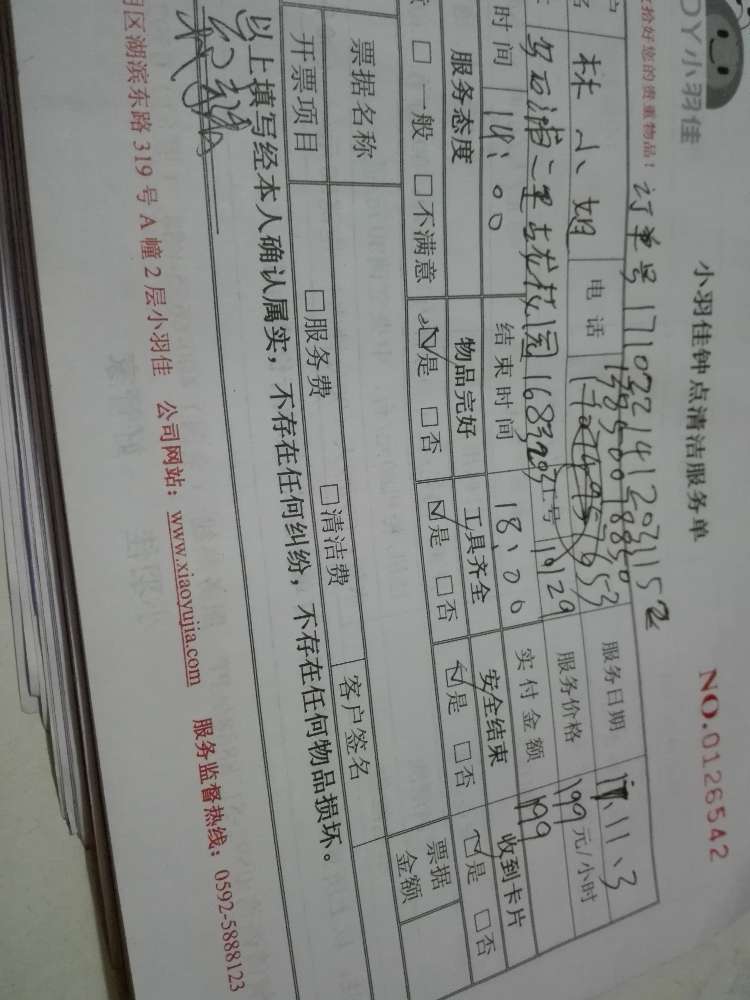 DY小羽佳
小羽佳钟点清洁服务单
NO.0126542
拾好您的贵重物品！ 订单号 1710221412031152
林小姐 电话 服务日期 11.3
服务价格 199元/小时
里古龙桂园1683203 工号 1929 实付金额 199
时间 14:00 结束时间 18:00
服务态度 物品完好 工具齐全 安全结束 收到卡片
□一般 □不满意 ☑是 □否 ☑是 □否 ☑是 □否 ☑是 □否
票据名称 客户签名 票据金额
开票项目 □服务费 □清洁费
以上填写经本人确认属实，不存在任何纠纷，不存在任何物品损坏。
区湖滨东路 319 号 A 幢 2 层小羽佳 公司网站：www.xiaoyujia.com 服务监督热线：0592-5888123